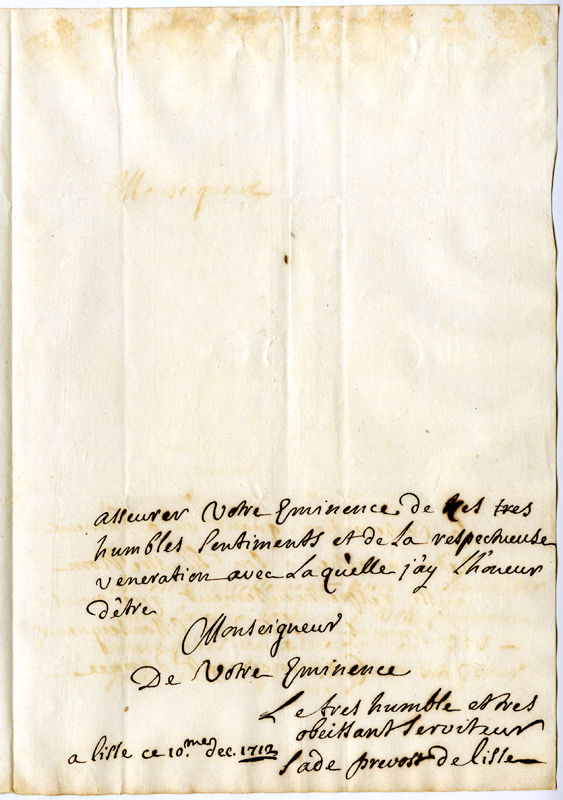 Monseigneur
asseurer Votre Eminence de mes tres
humbles sentiments et de la respectueuse
veneration avec Laquelle j'ay Lhoneur
d'être
Monseigneur
De Votre Eminence
Le tres humble et tres
obeissant serviteur
Sade prevost de lisle
a lisle ce 10.me dec. 1712